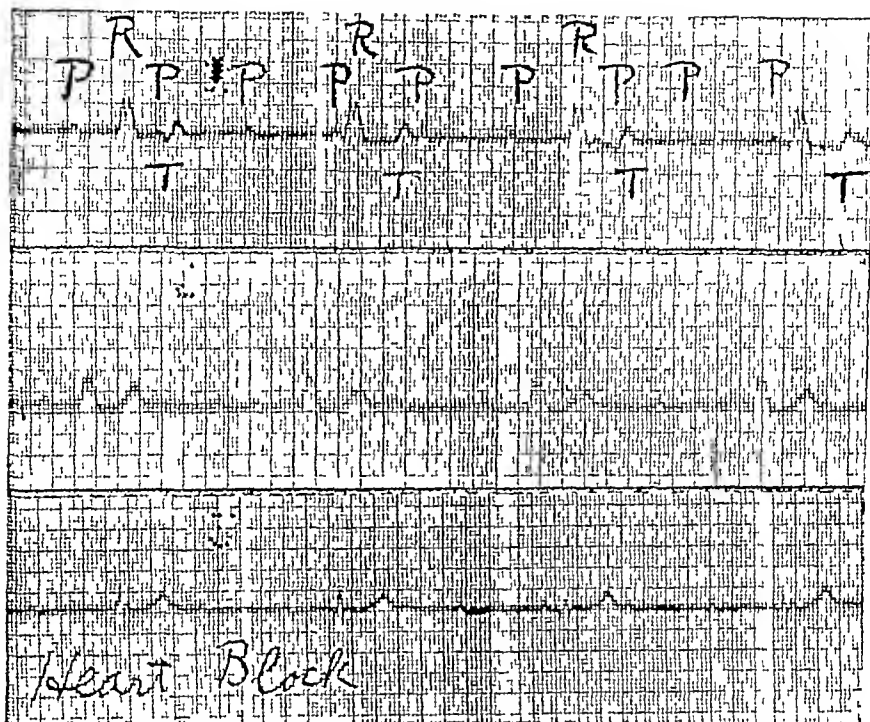 R R R
P P P P P P P P P
T T T T
Heart Block